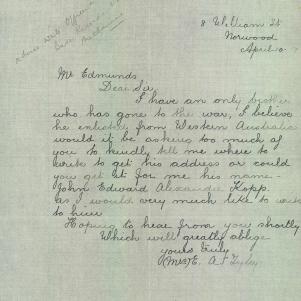 8 William St
Norwood
April
Mr Edmunds
Dear Sir
I have an only brother
who has gone to the war, I believe
he enlisted from Western Australia
would it be asking too much of
you to kindly tell me where to
write to get his address or could
you get it for me his name-
John Edward Alexander Kopp.
as I would very much like to write
to him
Hoping to hear from you shortly
Which will greatly oblige
yours truly
(Mrs) E. A.